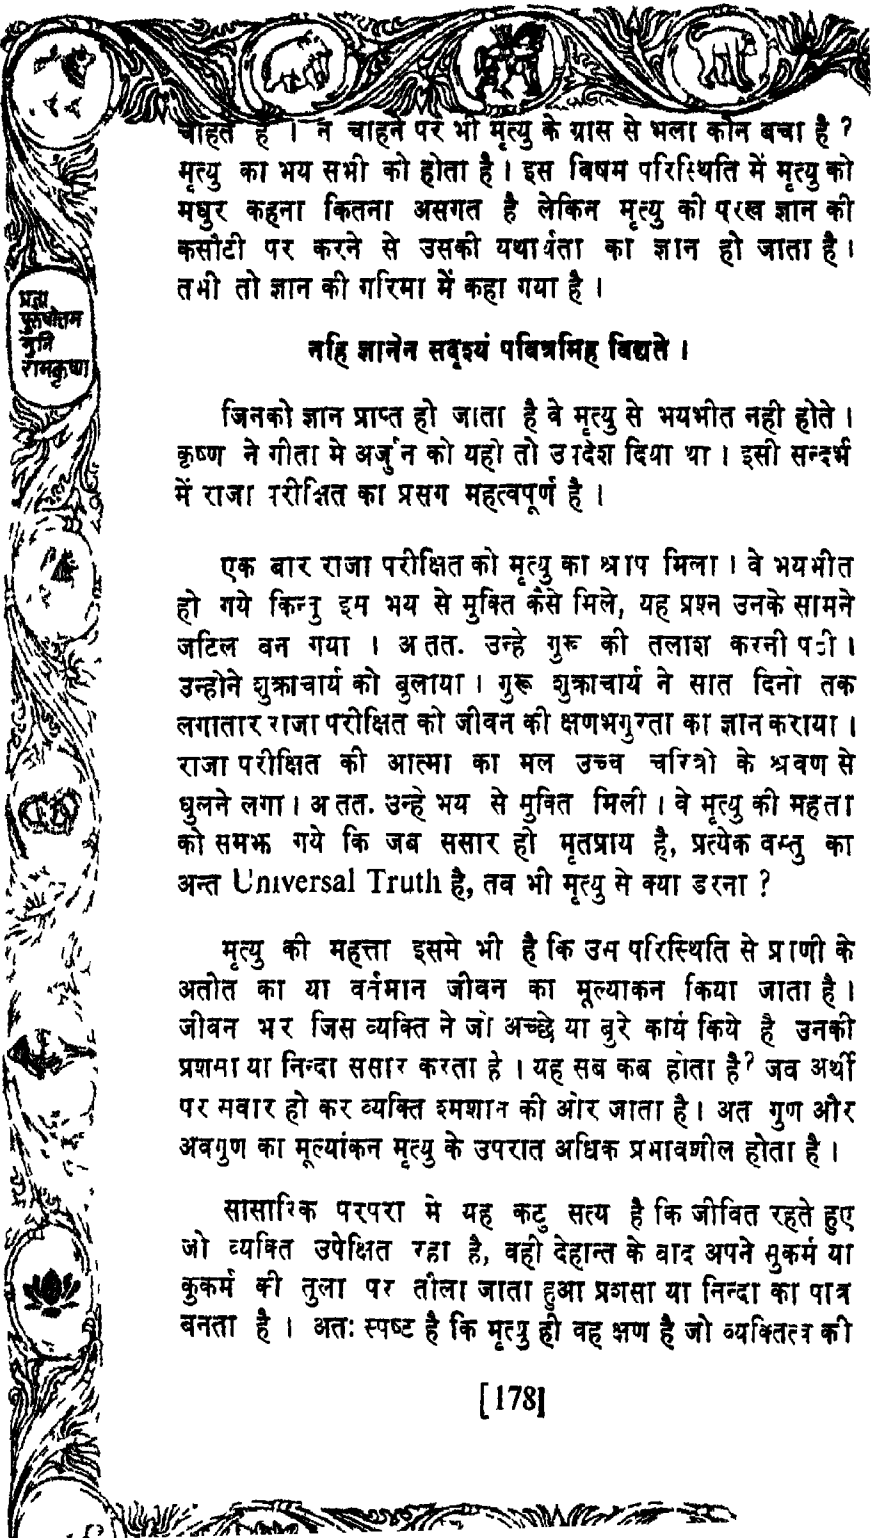 चाहते हैं । न चाहने पर भी मृत्यु के ग्रास से भला कौन बचा है ?
मृत्यु का भय सभी को होता है । इस विषम परिस्थिति में मृत्यु को
मधुर कहना कितना असगत है लेकिन मृत्यु को परख ज्ञान की
कसौटी पर करने से उसकी यथार्थता का ज्ञान हो जाता है ।
तभी तो ज्ञान की गरिमा में कहा गया है ।
प्रज्ञा
पुरुषोत्तम
मुनि
रामकृष्ण
नहि ज्ञानेन सदृश्यं पवित्रमिह विद्यते ।
जिनको ज्ञान प्राप्त हो जाता है वे मृत्यु से भयभीत नही होते ।
कृष्ण ने गीता मे अर्जुन को यही तो उपदेश दिया था । इसी सन्दर्भ
में राजा परीक्षित का प्रसग महत्वपूर्ण है ।
एक बार राजा परीक्षित को मृत्यु का श्राप मिला । वे भयभीत
हो गये किन्तु इस भय से मुक्ति कैसे मिले, यह प्रश्न उनके सामने
जटिल बन गया । अतत. उन्हे गुरू की तलाश करनी पडी ।
उन्होने शुक्राचार्य को बुलाया । गुरू शुक्राचार्य ने सात दिनो तक
लगातार राजा परीक्षित को जीवन की क्षणभगुरता का ज्ञान कराया ।
राजा परीक्षित की आत्मा का मल उच्च चरित्रो के श्रवण से
धुलने लगा । अतत. उन्हे भय से मुक्ति मिली । वे मृत्यु की महत्ता
को समझ गये कि जब ससार ही मृतप्राय है, प्रत्येक वस्तु का
अन्त Universal Truth है, तब भी मृत्यु से क्या डरना ?
मृत्यु की महत्ता इसमे भी है कि उस परिस्थिति से प्राणी के
अतीत का या वर्तमान जीवन का मूल्याकन किया जाता है ।
जीवन भर जिस व्यक्ति ने जो अच्छे या बुरे कार्य किये है उनकी
प्रशसा या निन्दा ससार करता है । यह सब कब होता है ? जब अर्थी
पर सवार हो कर व्यक्ति श्मशान की ओर जाता है । अत गुण और
अवगुण का मूल्यांकन मृत्यु के उपरात अधिक प्रभावशील होता है ।
सासारिक परपरा मे यह कटु सत्य है कि जीवित रहते हुए
जो व्यक्ति उपेक्षित रहा है, वही देहान्त के बाद अपने सुकर्म या
कुकर्म की तुला पर तौला जाता हुआ प्रशसा या निन्दा का पात्र
बनता है । अतः स्पष्ट है कि मृत्यु ही वह क्षण है जो व्यक्तित्व की
[178]